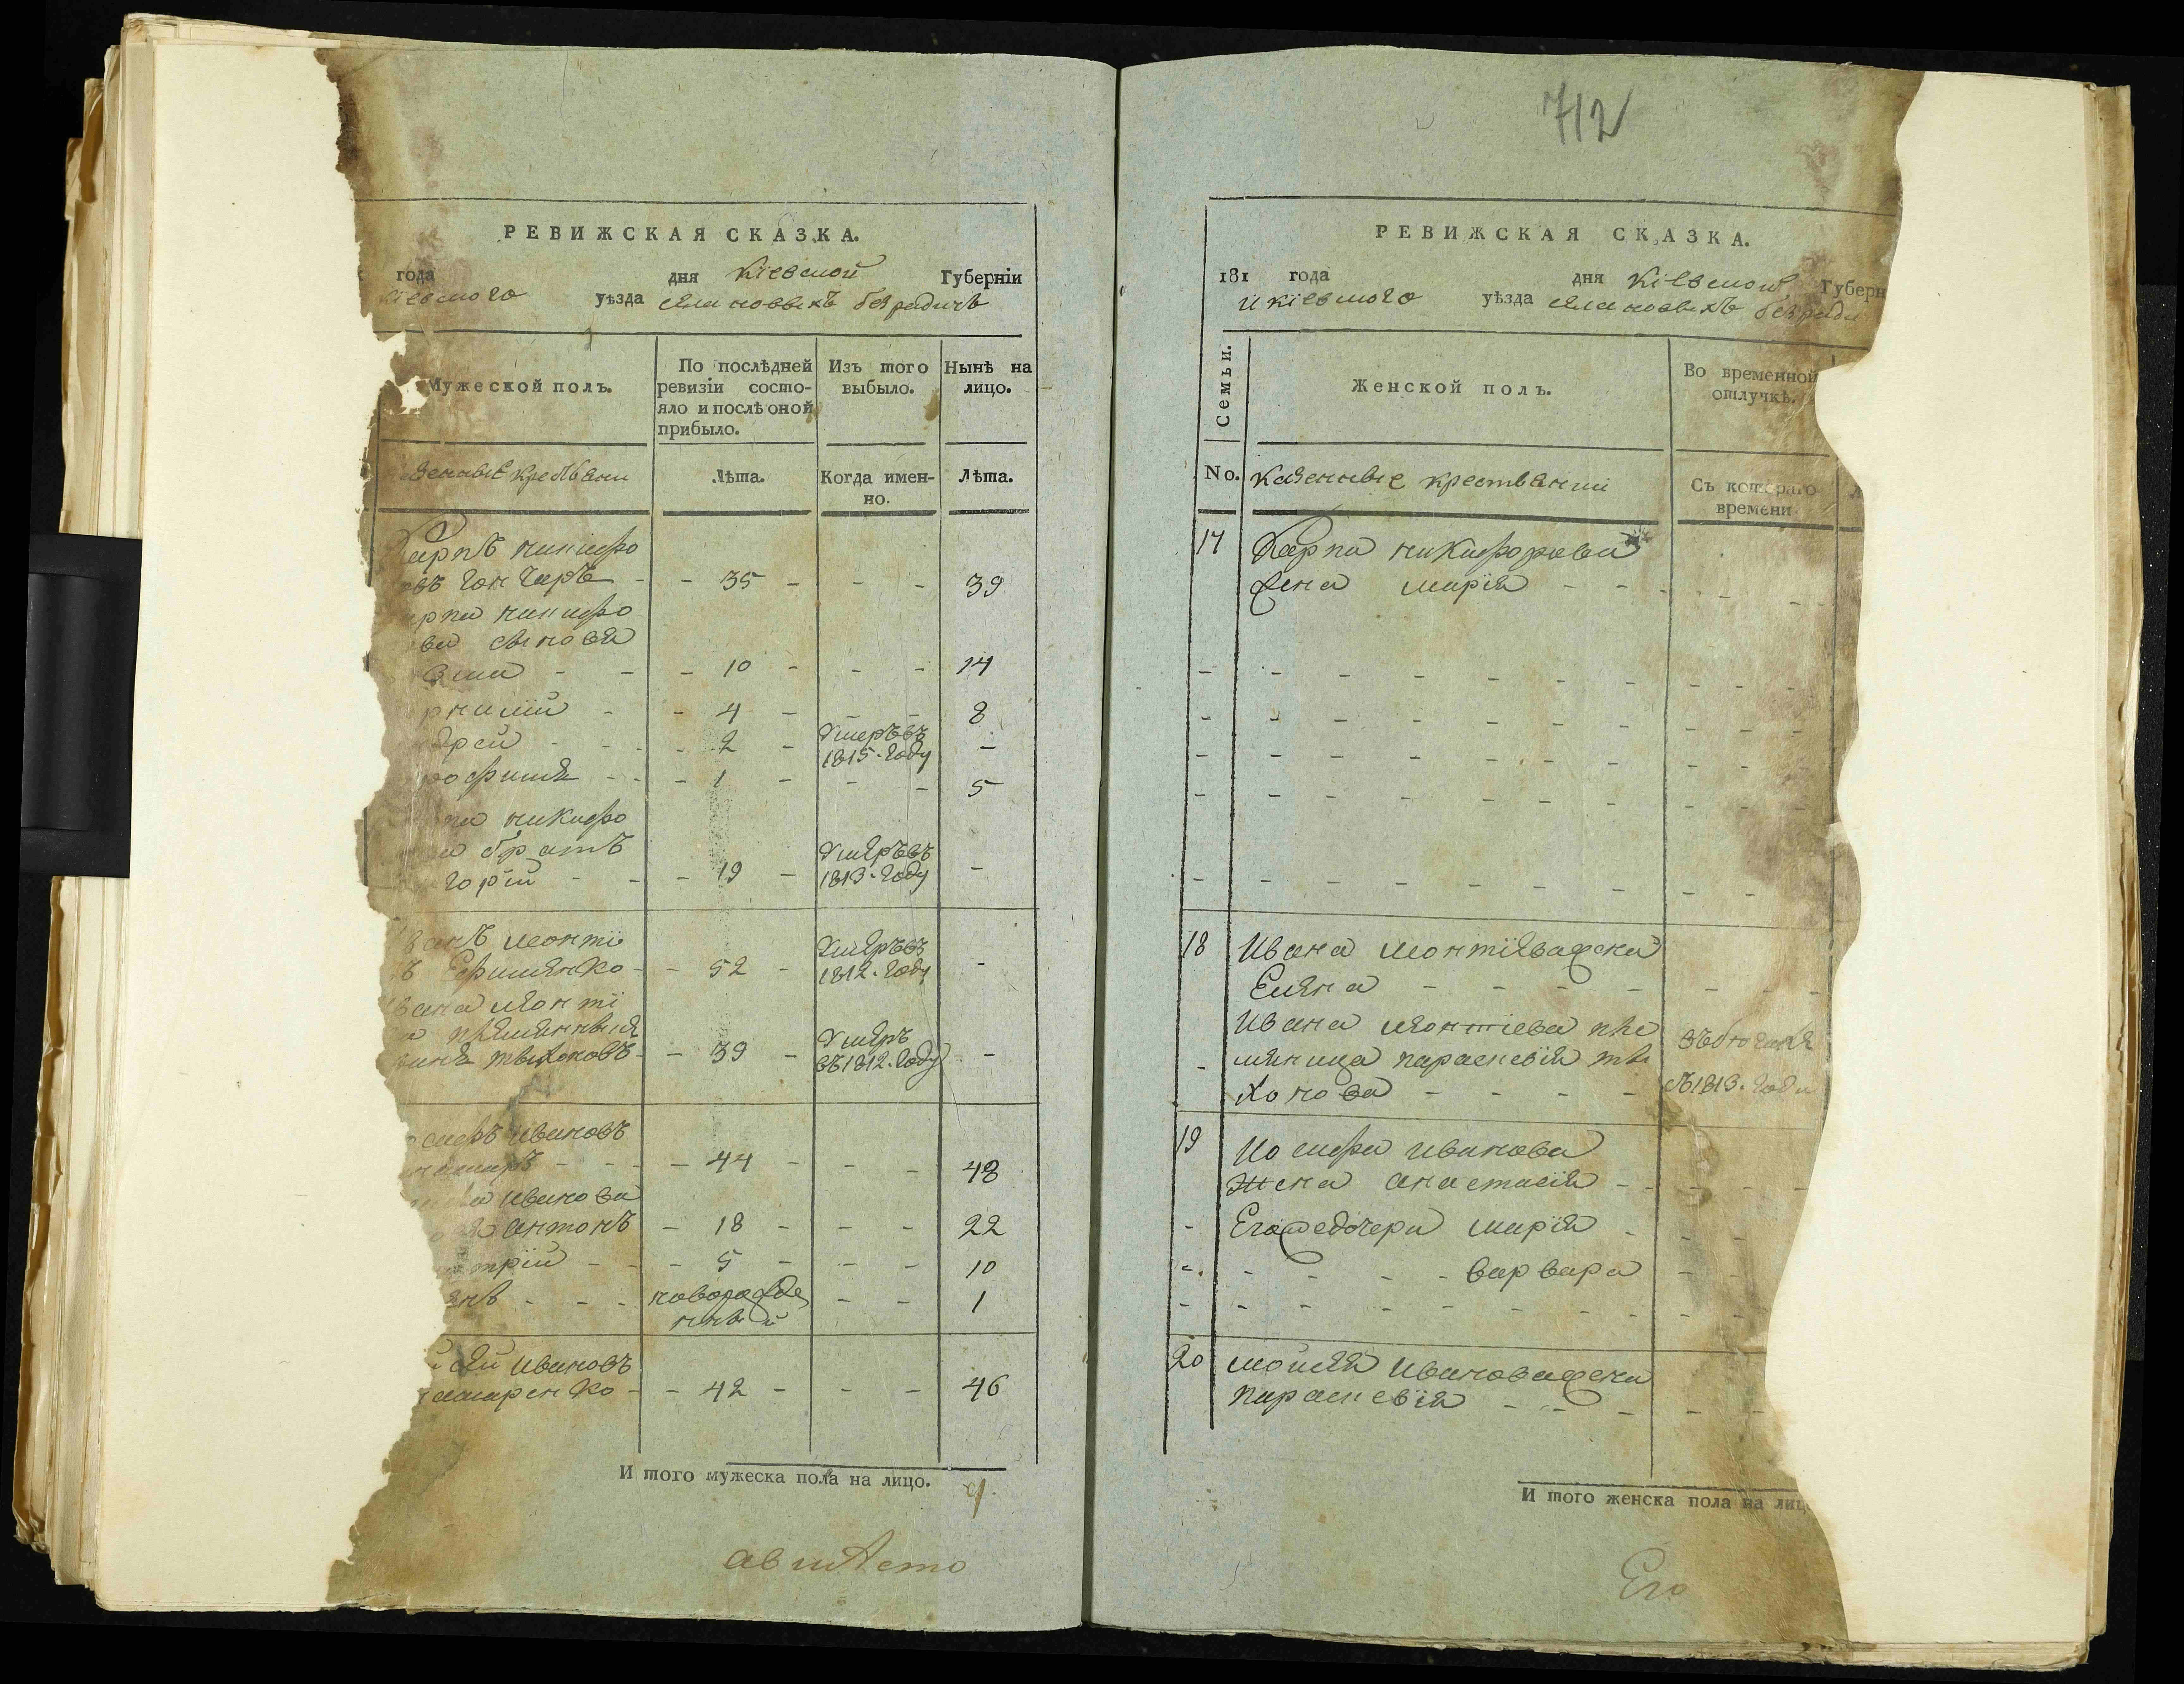 РЕВИЖСКАЯ СКАЗКА.
года дня Кіевской Губерніи
кіевского уѣзда села новыхъ безрадичь
Мужеской полъ.
По послѣдней ревизіи состояло и послѣ оной прибыло.
Изъ того выбыло.
Нынѣ на лицо.
зенные крестьяни
Лѣта.
Когда именно.
Лѣта.
Карпъ никифо
овъ гончаръ - - 35 - - - 39
арпа никифо
ва сыновя
- - - 10 - - - 14
рнилій - - 4 - - - 8
дрей - - - 2 - умеръ въ 1815. году -
рофимъ - - - 1 - - - 5
па никифо
а братъ
горій - - - 19 - умеръ въ 1813. году -
ванъ леонті
въ Ефименко - - 52 - умеръ въ 1812. году -
вана леонті
а племенныкъ
тыхоновъ - - 39 - умеръ въ 1812. году -
осифъ ивановъ
- - - 44 - - - 48
ифа иванова
антонъ - 18 - - - 22
трій - - - 5 - - - 10
- - - новорожденный - - 1
сей ивановъ
- - 42 - - - 46
И того мужеска пола на лицо. 9.
а вмѣсто
712
РЕВИЖСКАЯ СКАЗКА.
181 года дня Кіевской Губерн
и кіевского уѣзда села новыхъ безради
Семьи.
Женской полъ.
Во временной отлучкѣ.
No.
казенные крестьянии
Съ котораго времени
17 Карпа никифорова
жена марія - - - - -
- - - - - - - - - -
- - - - - - - - - -
- - - - - - - - - -
- - - - - - - - - -
- - - - - - - - - -
18 Ивана леонтіева жена
Елена - - - - - - -
Ивана леонтіева пле
- меница параскевія ты
хонова - - - - съ 1813. году
19 Иосифа иванова
жена анастасія - - - - -
- Его же дочери марія - - -
- - - - - варвара - -
- - - - - - - - - -
20 мойсея иванова жена
параскевія - - - - -
И того женска пола на лиц
Его